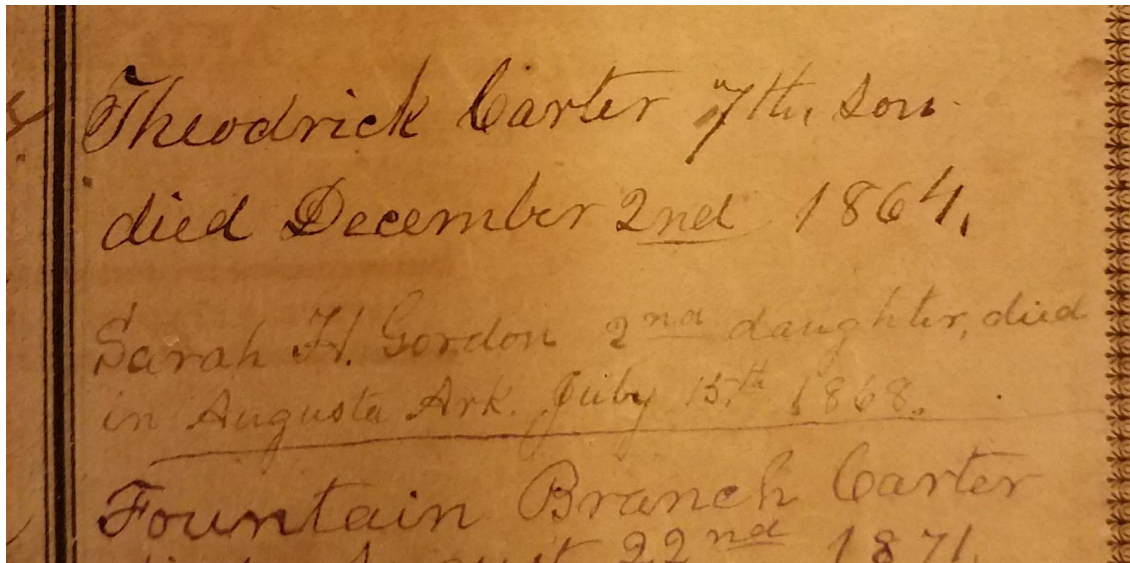 Theodrick Carter 7th, son
died December 2nd 1864.
Sarah H. Gordon 2nd daughter, died
in Augusta Ark. July 15th 1868.
Fountain Branch Carter
died August 22nd 1871.